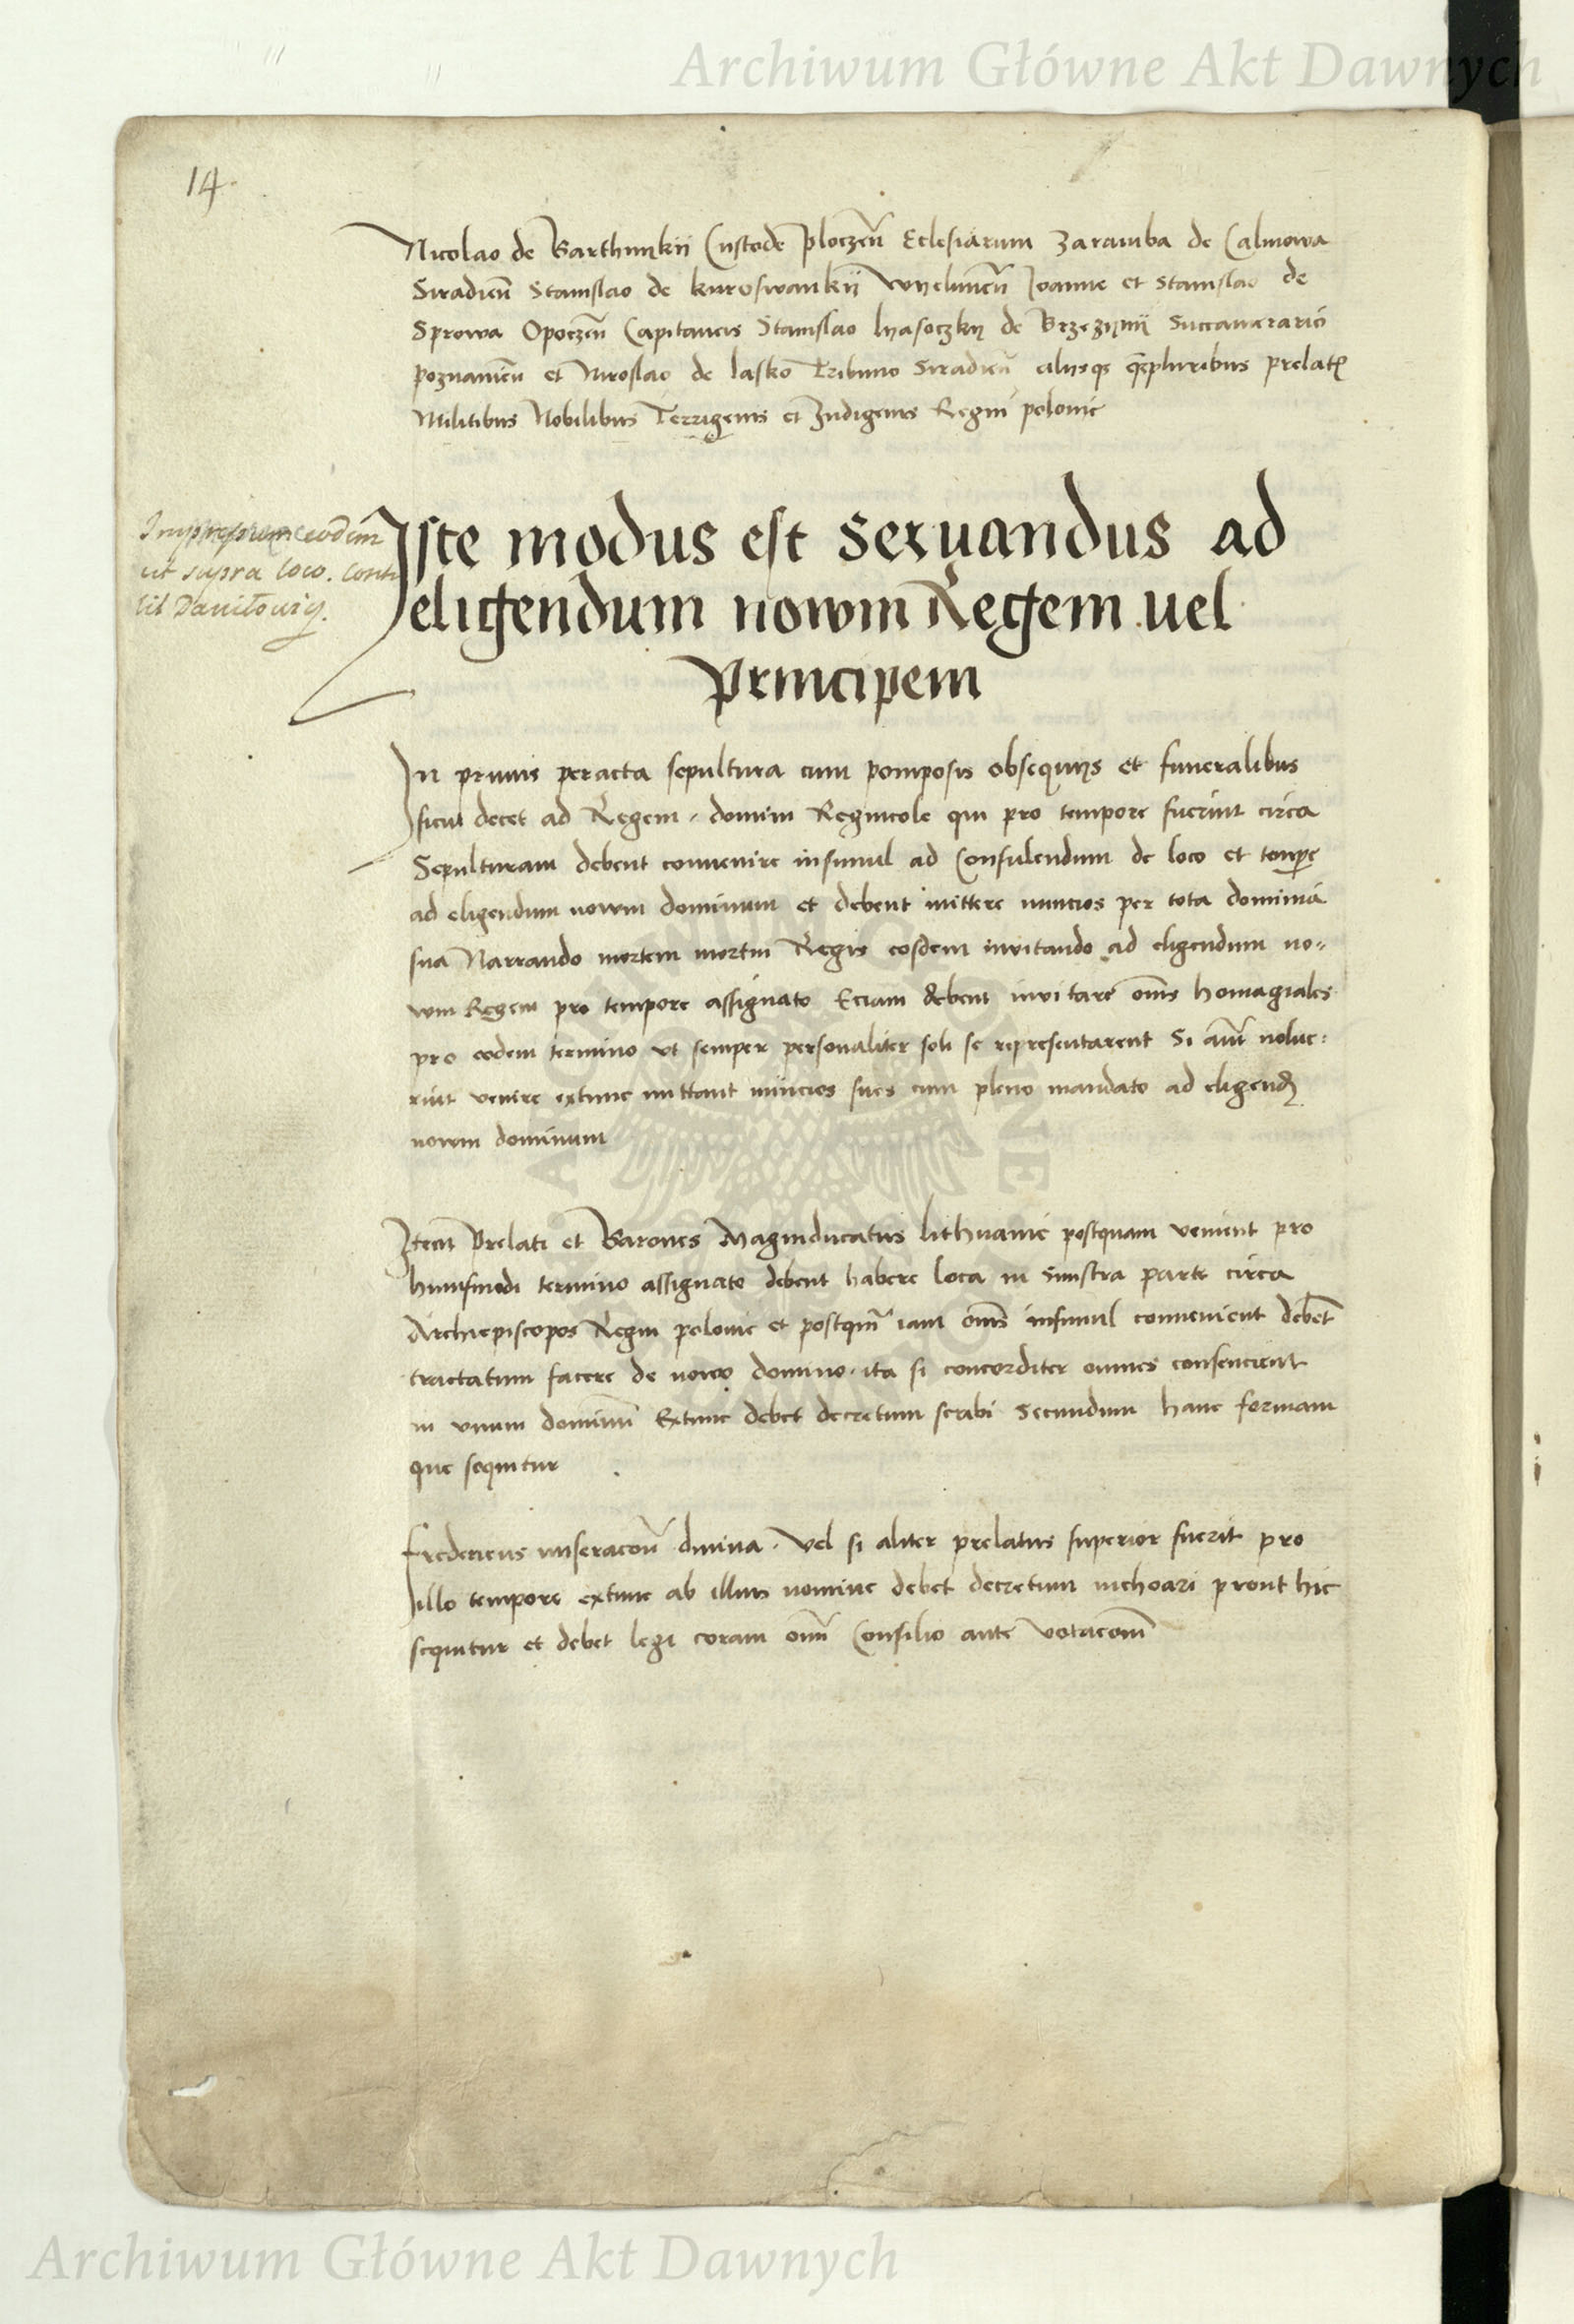 Archiwum Główne Akt Dawnych
14
Nicolao de Barthnikii Custode ploczen̄ Eclesiarum Zaramba de Calinowa
Siradien̄ Stanislao de kuroswankii Whelunen̄ Joanne et Stanislao de
Sprowa Opoczen̄ Capitaneis Stanislao lyasoczky de Brzezynii Succamerario
poznanien̄ et Miroslao de lasko Tribuno Siradien̄ aliisqȝ q̄pluribus prelatꝭ
Militibus Nobilibus Terrigenis et Indigenis Regni polonie
eodem
ut supra loco. Contu
lit Daniłowicz.
Iste modus est seruandus ad
eligendum nowm Regem uel
principem
In primis peracta sepultura cum pomposis obsequijs et funeralibus
sicut decet ad Regem, domini Regnicole qui pro tempore fuerint circa
Sepulturam debent conuenire insimul ad Consulendum de loco et tempe
ad eligendum nowm dominum et debent mittere nuncios per tota dominia
sua Narrando mortem mortui Regis eosdem inuitando ad eligendum no-
wm Regem pro tempore assignato Eciam debent inuitare om̄s homagiales
pro eodem termino vt semper personaliter soli se representarent Si aūt nolue-
rint venire extunc mittant nūncios suos cum pleno mandato ad eligend
nowm dominum
Item Prelati et Barones Magniducatus lithuanie postquam venient pro
huiusmodi termino assignato debent habere loca in sinistra parte circa
Archiepiscopos Regni polonie et postqm̄ iam om̄s insimul conuenient debēt
tractatum facere de nowo domino. ita si concorditer omnes consencient
in vnum dominū Extunc debet decretum scribi Secundum hanc formam
que sequitur
Fredericus miseracōn diuina. Vel si aliter prelatus superior fuerit pro
illo tempore extunc ab illius nomine debet decretum inchoari prout hic
sequitur et debet legi coram om̄i Consilio ante votacom̄
Archiwum Główne Akt Dawnych